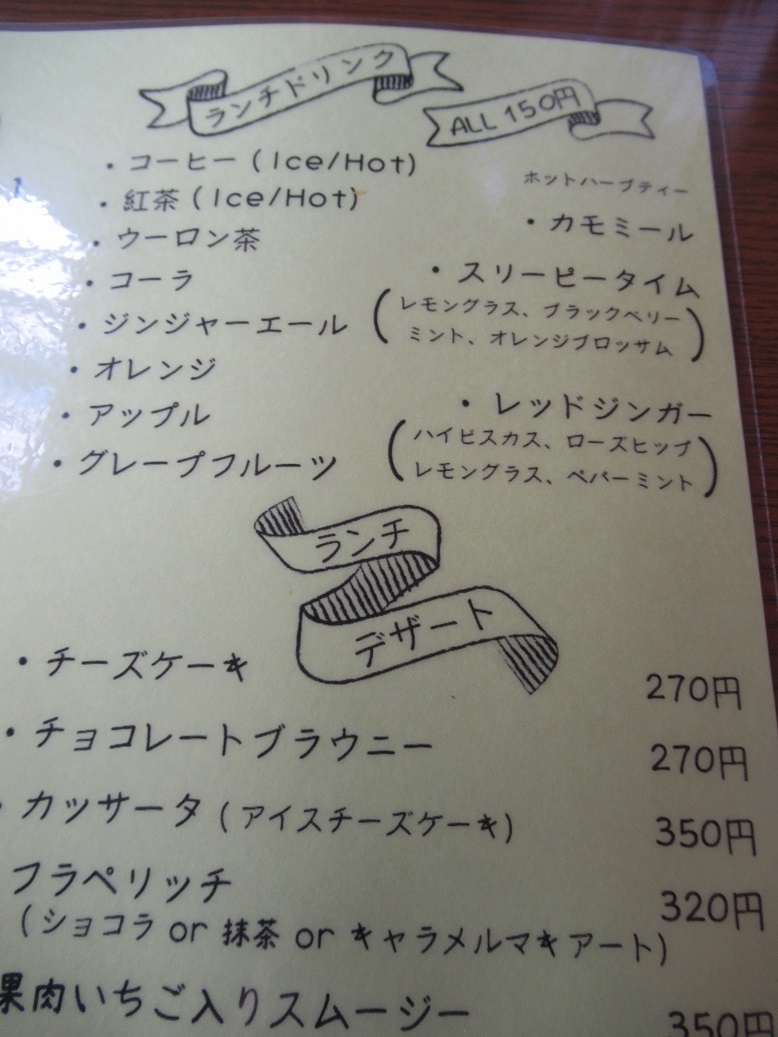 ランチドリンク
ALL 150円
・コーヒー (Ice/Hot)
・紅茶 (Ice/Hot)
・ウーロン茶
・コーラ
・ジンジャーエール
・オレンジ
・アップル
・グレープフルーツ
ホットハーブティー
・カモミール
・スリーピータイム
(レモングラス、ブラックベリー
ミント、オレンジブロッサム)
・レッドジンガー
(ハイビスカス、ローズヒップ
レモングラス、ペパーミント)
ランチ
デザート
・チーズケーキ 270円
・チョコレートブラウニー 270円
・カッサータ (アイスチーズケーキ) 350円
フラペリッチ 320円
(ショコラ or 抹茶 or キャラメルマキアート)
果肉いちご入りスムージー 350円